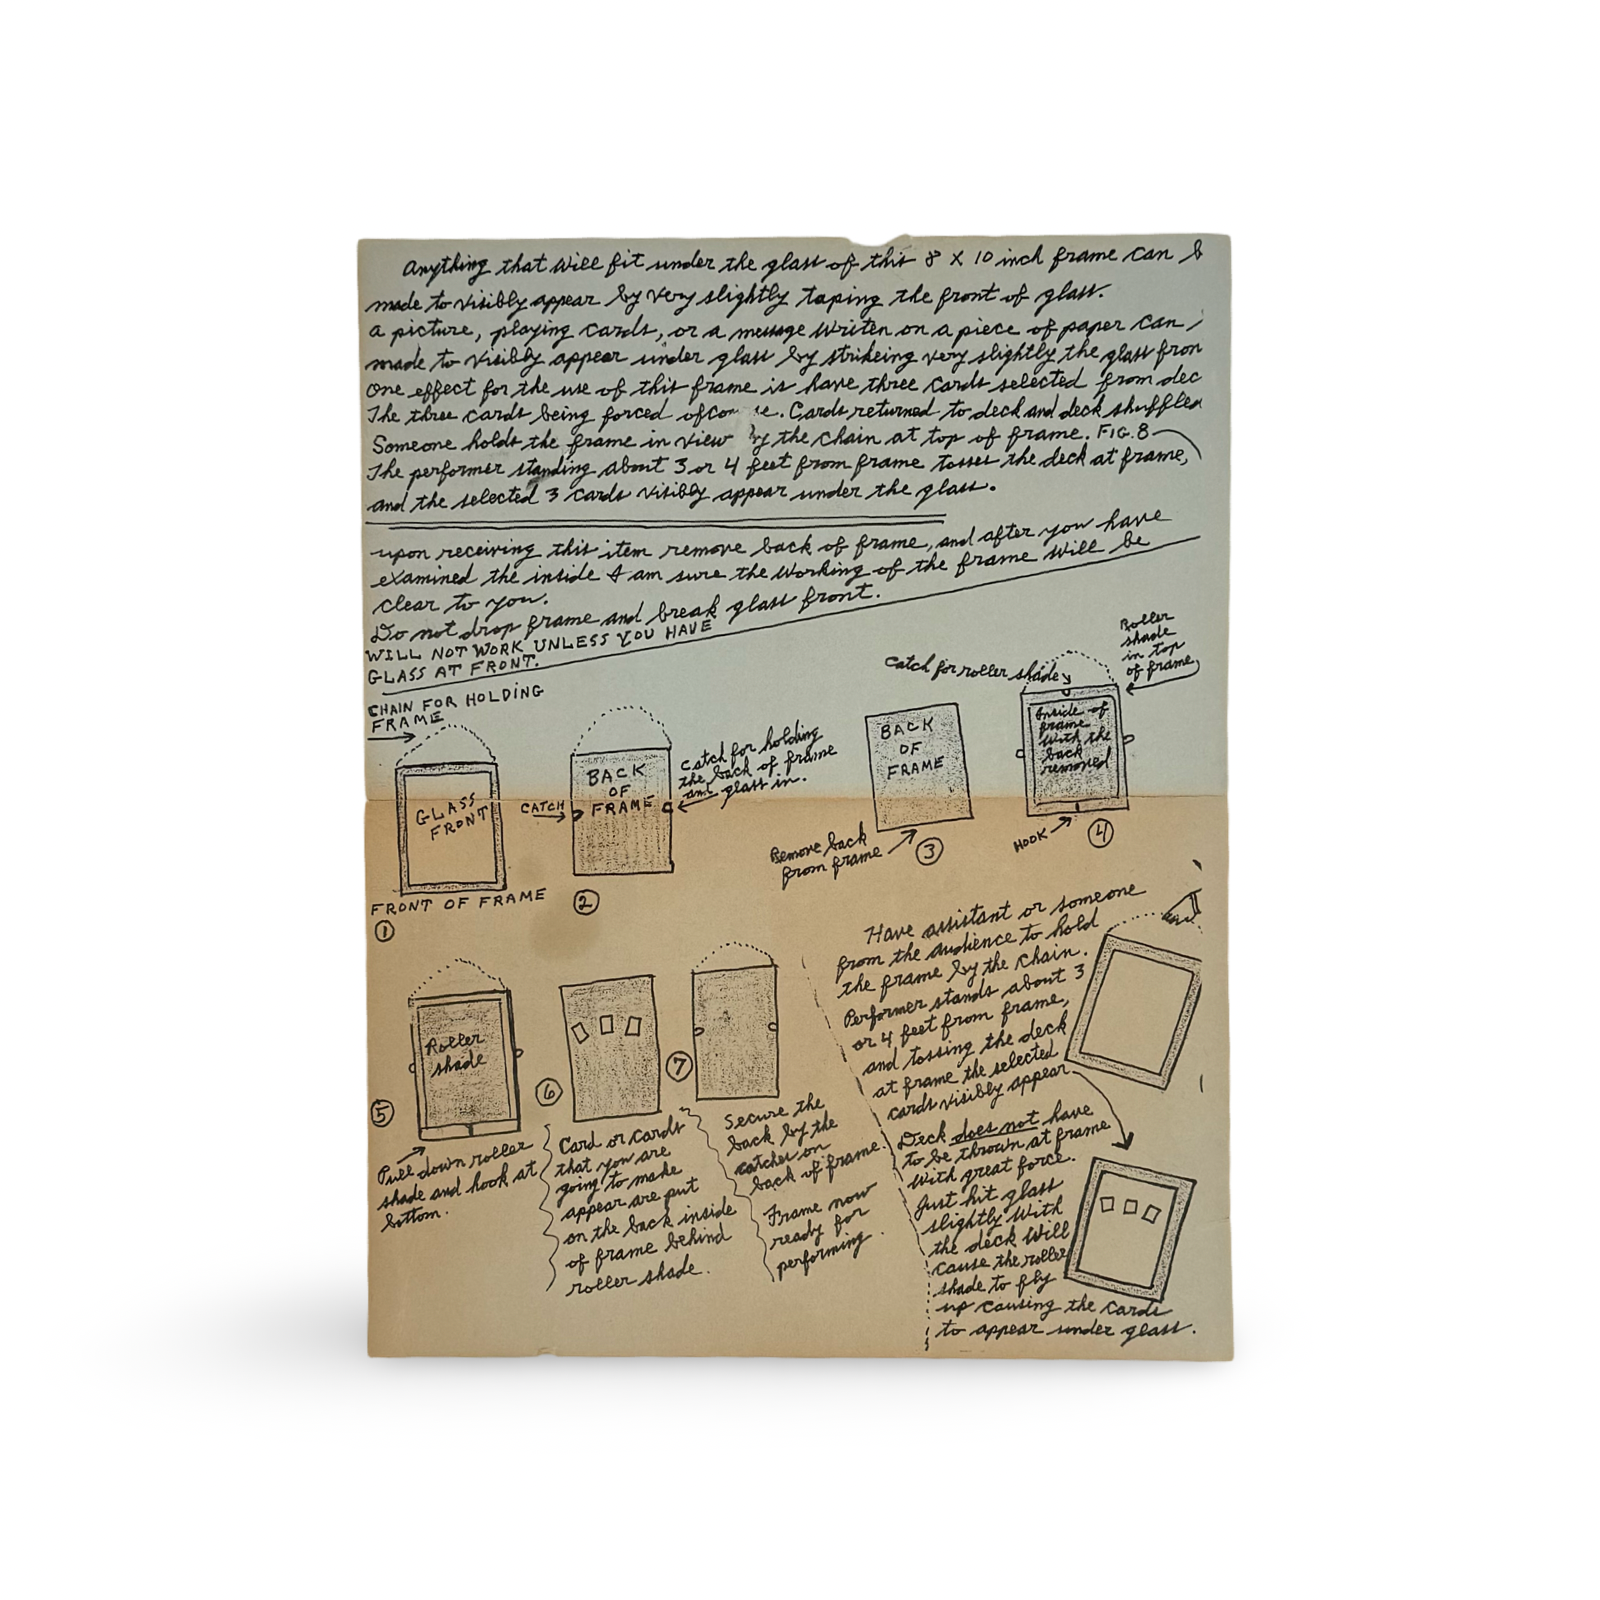 Anything that will fit under the glass of this 8 X 10 inch frame can b
made to visibly appear by very slightly taping the front of glass.
a picture, playing cards, or a message writen on a piece of paper can
made to visibly appear under glass by strikeing very slightly the glass fron
One effect for the use of this frame is have three cards selected from dec
The three cards being forced of co se. Cards returned to deck and deck shuffled
Someone holds the frame in view by the chain at top of frame. FIG. 8
The performer standing about 3 or 4 feet from frame tosses the deck at frame,
and the selected 3 cards visibly appear under the glass.
upon receiving this item remove back of frame, and after you have
examined the inside I am sure the working of the frame will be
clear to you.
Do not drop frame and break glass front.
WILL NOT WORK UNLESS YOU HAVE
GLASS AT FRONT.
CHAIN FOR HOLDING
FRAME
GLASS
FRONT
FRONT OF FRAME
1
CATCH
BACK
OF
FRAME
Catch for holding
the back of frame
and glass in.
2
BACK
OF
FRAME
Remove back
from frame
3
Catch for roller shade
Roller
shade
in top
of frame
Inside of
frame
with the
back
removed
HOOK
4
Roller
shade
5
Pull down roller
shade and hook at
bottom.
6
Card or cards
that you are
going to make
appear are put
on the back inside
of frame behind
roller shade.
7
Secure the
back by the
catches on
back of frame.
Frame now
ready for
performing.
Have assistant or someone
from the audience to hold
the frame by the chain.
Performer stands about 3
or 4 feet from frame,
and tossing the deck
at frame the selected
cards visibly appear
Deck does not have
to be thrown at frame
with great force.
Just hit glass
slightly with
the deck will
cause the roller
shade to fly
up causing the cards
to appear under glass.